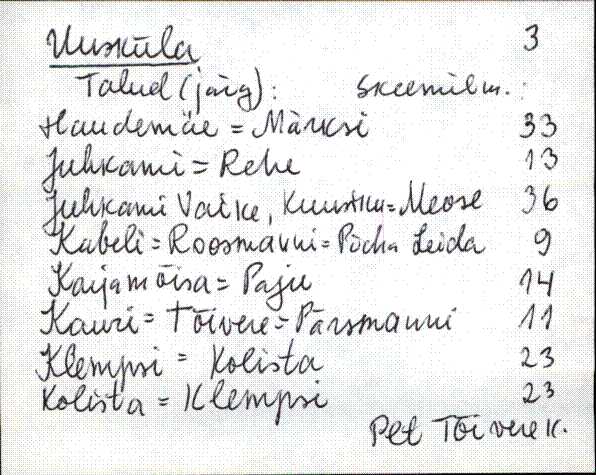 Uusküla 3
Talud (järg): skeemil nr.:
Haudemäe = Märksi 33
Juhkami = Rehe 13
Juhkami Väike, Kuusiku = Meose 36
Kabeli = Roosmanni = Pücha Leida 9
Karjamõisa = Paju 14
Kauri = Tõivere = Pärsmanni 11
Klempsi = Kolista 23
Kolista = Klempsi 23
Pet Tõivere k.